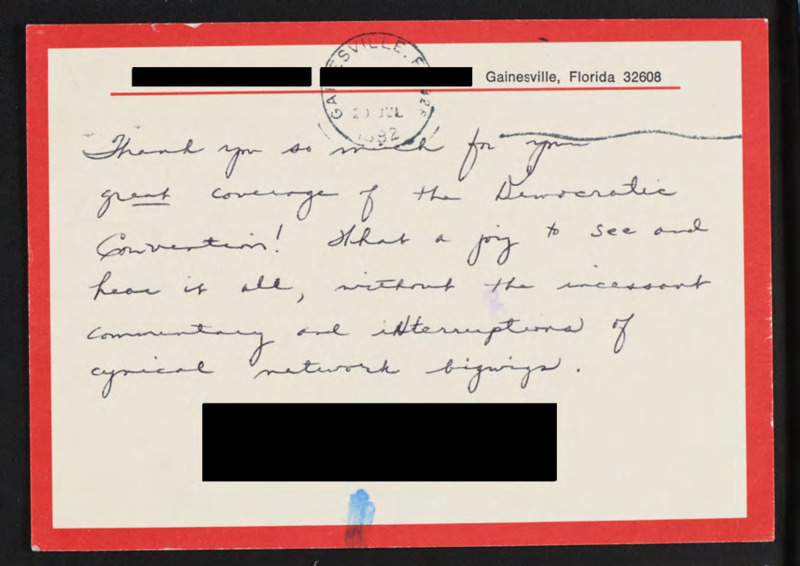 Gainesville, Florida 32608
GAINESVILLE, F
20 JUL
1992
Thank you so much for your
great coverage of the Democratic
Convention! What a joy to see and
hear it all, without the incessant
commentary and interruptions of
cynical network bigwigs.